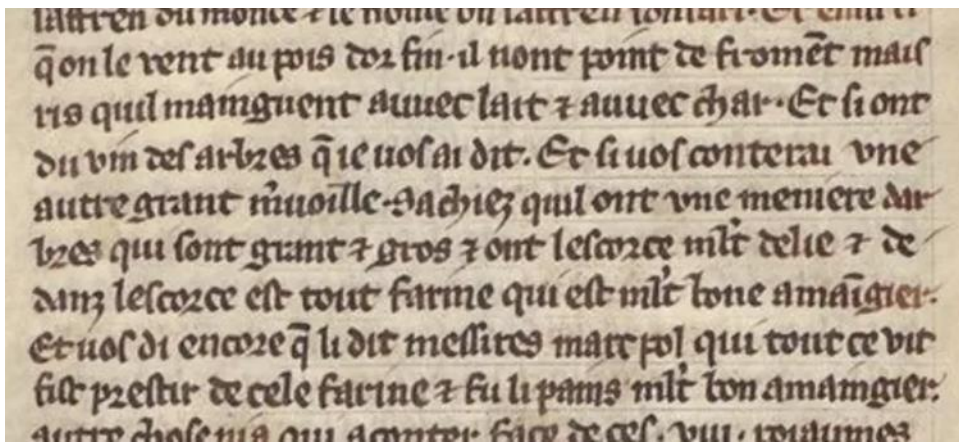 q̃ on le vent au pois dor fin · il nont point de fromẽt mais
ris quil mainguent auuec lait ⁊ auuec char · Et si ont
du vin des arbres q̃ ie uos ai dit. Et si uos conterai vne
autre grant m̃uoille · Sachiez quil ont vne meniere dar
bres qui sont grant ⁊ gros ⁊ ont lescorce ml̃t delie ⁊ de
danz lescorce est tout farine qui est ml̃t bone amaĩgier.
Et uos di encore q̃ li dit messires marc pol qui tout ce vit
fist prestir de cele farine ⁊ fu li pains ml̃t bon amaingier.
autre chose nia qui aconter face de ces · viii · roiaumez